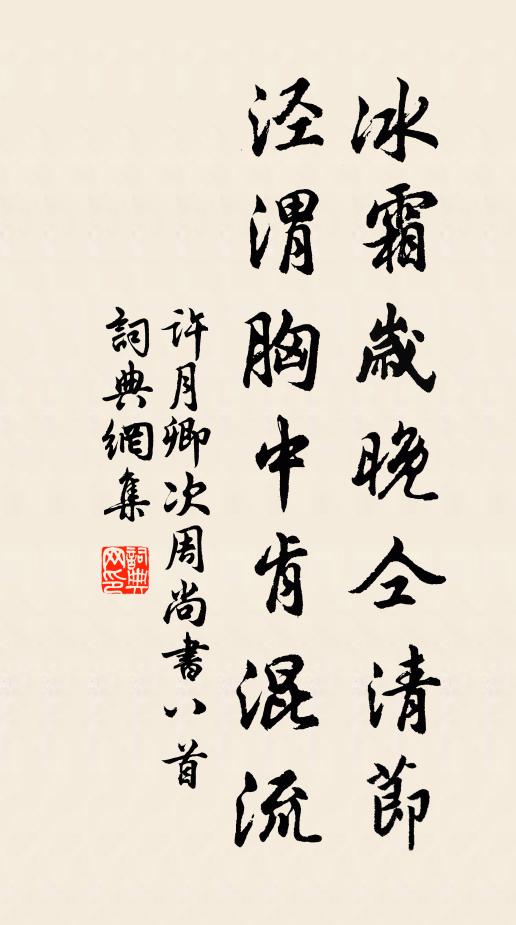 冰霜歲晚仝清節
泾渭胸中肯混流
許月卿次周尚書八首
詞典網集
詞典网印